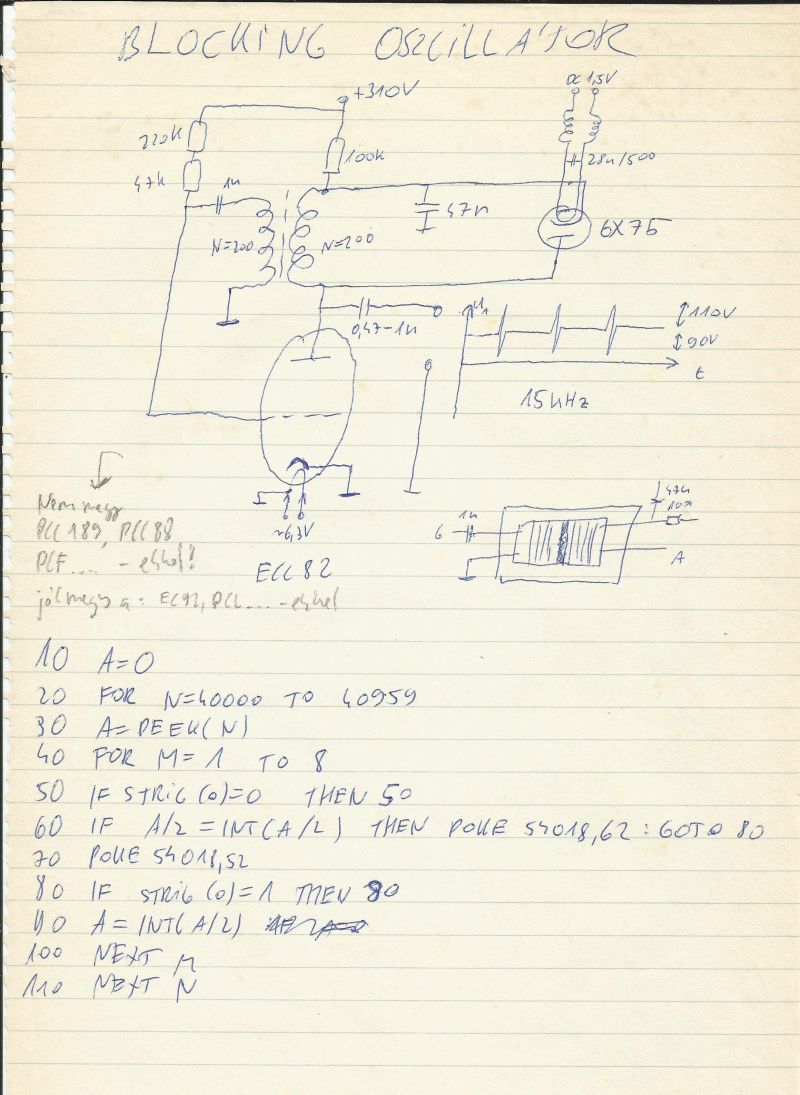 BLOCKING OSZCILLÁTOR
+310V
∝ 1,5V
220k
100k
28n/500
47k
1n
47n
N=200
N=200
6X75
0,47-1n
U1
110V
90V
t
15kHz
Nem megy
PCC 189, PCC 88
PCF.... - ekkel!
jól megy a: EC92, PCC.... -ekkel
~6,3V
ECC 82
1n
G
47n
100k
A
10 A=0
20 FOR N=40000 TO 40959
30 A=PEEK(N)
40 FOR M=1 TO 8
50 IF STRIG(0)=0 THEN 50
60 IF A/2=INT(A/2) THEN POKE 54018,62:GOTO 80
70 POKE 54018,52
80 IF STRIG(0)=1 THEN 80
90 A=INT(A/2)
100 NEXT M
110 NEXT N